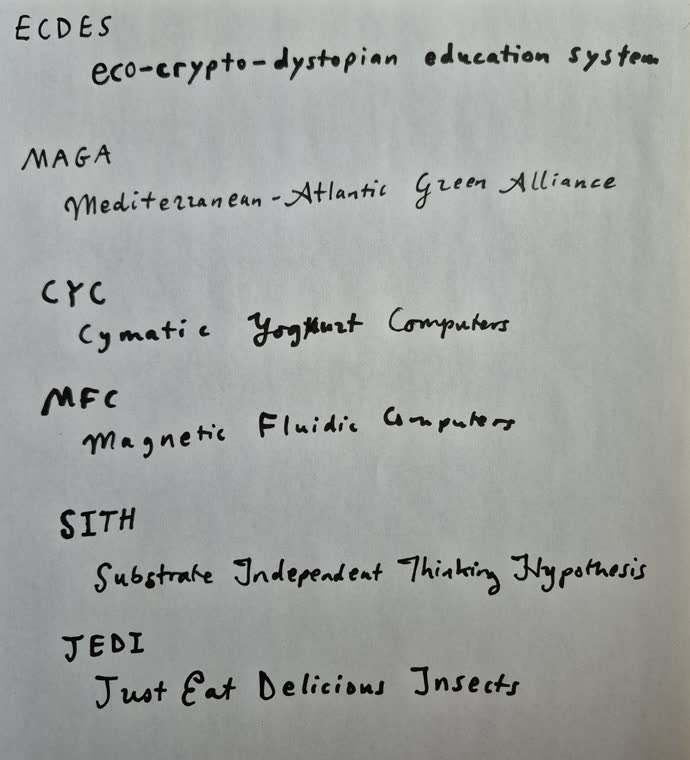 ECDES
eco-crypto-dystopian education system
MAGA
Mediterranean-Atlantic Green Alliance
CYC
Cymatic Yoghurt Computers
MFC
Magnetic Fluidic Computers
SITH
Substrate Independent Thinking Hypothesis
JEDI
Just Eat Delicious Insects